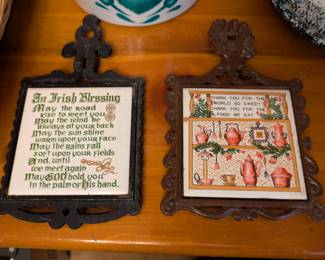 An Irish Blessing
May the road
rise to meet you
May the wind be
always at your back
May the sun shine
warm upon your face
May the rains fall
soft upon your fields
And, until
we meet again
May God hold you
in the palm of His hand.
THANK YOU FOR THE
WORLD SO SWEET
THANK YOU FOR THE
FOOD WE EAT